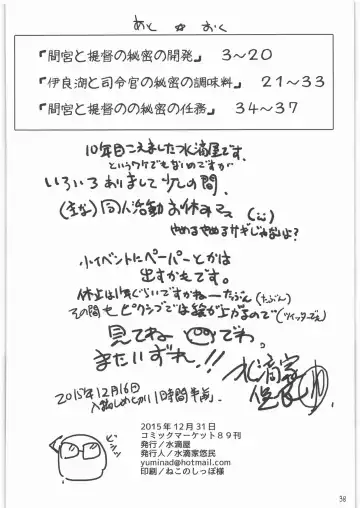 あとがおく
『間宮と提督の秘密の開発』 3～20
『伊良湖と司令官の秘密の調味料』 21～33
『間宮と提督のの秘密の任務』 34～37
10年目こえました水滴屋です。
というワケでもないのですが
いろいろありまして少しの間、
(主な)同人活動お休みマス
やめるやめるサギじゃないよ？
小イベントにペーパーとかは
出すかもです。
休止は1年ぐらいですかねーたぶん(たぶん)
その間セピクシブでは絵が上がるので(ツイッターでも)
見てね でわ。
またいずれ!!
水滴家
悠民
2015年12月16日
入稿しめ切り1時間半前
ビシッ
2015年12月31日
コミックマーケット89刊
発行／水滴屋
発行人／水滴家悠民
yuminad@hotmail.com
印刷／ねこのしっぽ様
38